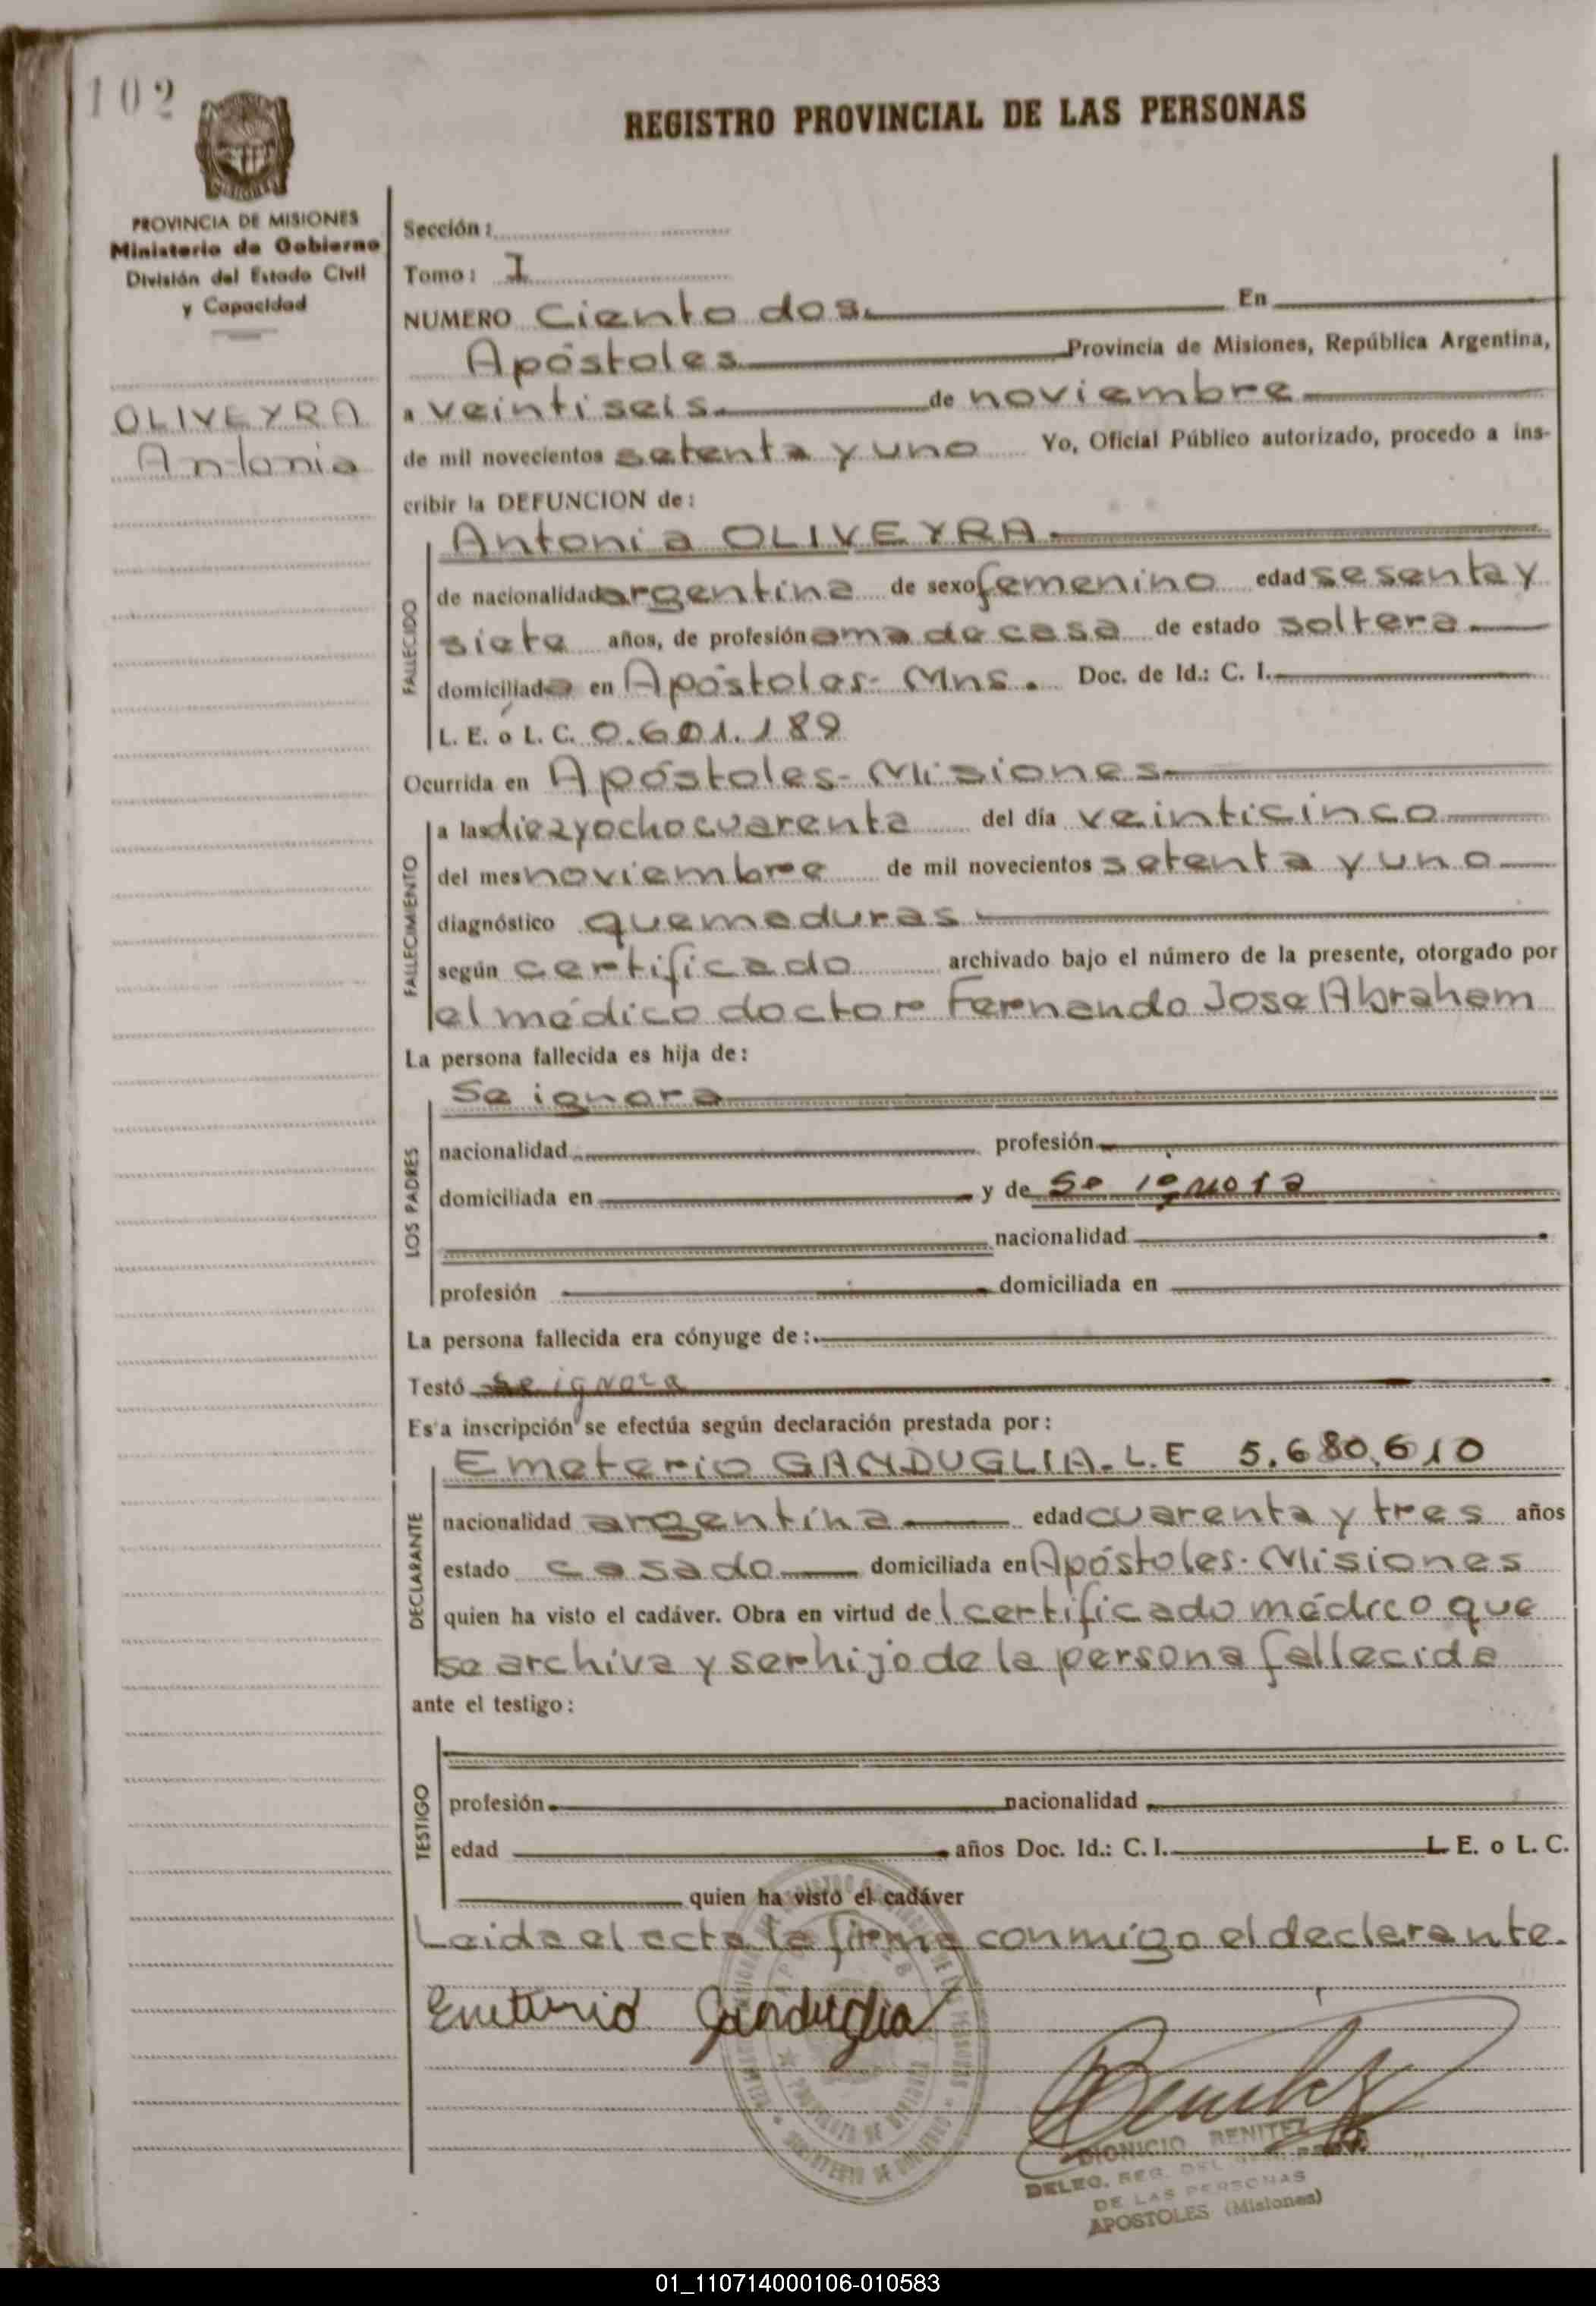 102
REGISTRO PROVINCIAL DE LAS PERSONAS
MISIONES
PROVINCIA DE MISIONES
Ministerio de Gobierno
División del Estado Civil
y Capacidad
OLIVEYRA
Antonia
Sección:
Tomo: I
NUMERO Ciento dos. En
Apóstoles Provincia de Misiones, República Argentina,
a veintiseis de noviembre
de mil novecientos setenta y uno Yo, Oficial Público autorizado, procedo a ins-
cribir la DEFUNCION de:
FALLECIDO
Antonia OLIVEYRA
de nacionalidad argentina de sexo femenino edad sesenta y
siete años, de profesión ama de casa de estado soltera
domiciliada en Apóstoles- Mns. Doc. de Id.: C. I.
L. E. ó L. C. 0.601.189
Ocurrida en Apóstoles- Misiones
FALLECIMIENTO
a las diez y ocho cuarenta del día veinticinco
del mes noviembre de mil novecientos setenta y uno
diagnóstico quemaduras
según certificado archivado bajo el número de la presente, otorgado por
el médico doctor Fernando Jose Abraham
La persona fallecida es hija de:
LOS PADRES
Se ignora
nacionalidad profesión
domiciliada en y de Se ignora
nacionalidad
profesión domiciliada en
La persona fallecida era cónyuge de:
Testó se ignora
Esta inscripción se efectúa según declaración prestada por:
DECLARANTE
Emeterio GANDUGLIA. L.E 5.680.610
nacionalidad argentina edad cuarenta y tres años
estado casado domiciliada en Apóstoles. Misiones
quien ha visto el cadáver. Obra en virtud del certificado médico que
se archiva y ser hijo de la persona fallecida
ante el testigo:
TESTIGO
profesión nacionalidad
edad años Doc. Id.: C. I. L. E. o L. C.
quien ha visto el cadáver
Leida el acta la firma conmigo el declarante.
Emeterio Ganduglia
Benitez
DIONICIO BENITEZ
DELEG. REG. DEL
DE LAS PERSONAS
APOSTOLES (Misiones)
01_110714000106-010583